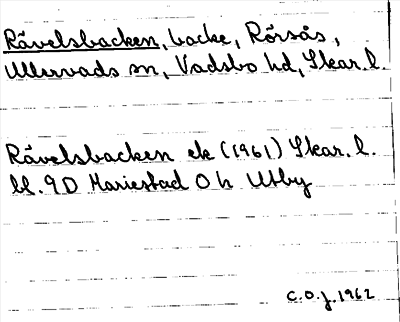 Råvelsbacken, backe, Rörsås,
Ullervads sn, Vadsbo hd, Skar. l.
Råvelsbacken ek (1961) Skar. l.
bl. 9D Mariestad Ö h Utby
C.O.J. 1962